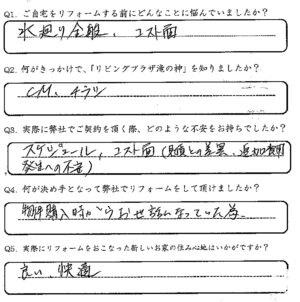 Q1. ご自宅をリフォームする前にどんなことに悩んでいましたか？
水廻り全般、コスト面
Q2. 何がきっかけで、「リビングプラザ滝の神」を知りましたか？
CM、チラシ
Q3. 実際に弊社でご契約を頂く際、どのような不安をお持ちでしたか？
スケジュール、コスト面(見積との差異、追加費用
発生への不安)
Q4. 何が決め手となって弊社でリフォームをして頂けましたか？
物件購入時からお世話になっていた為
Q5. 実際にリフォームをおこなった新しいお家の住み心地はいかがですか？
良い、快適